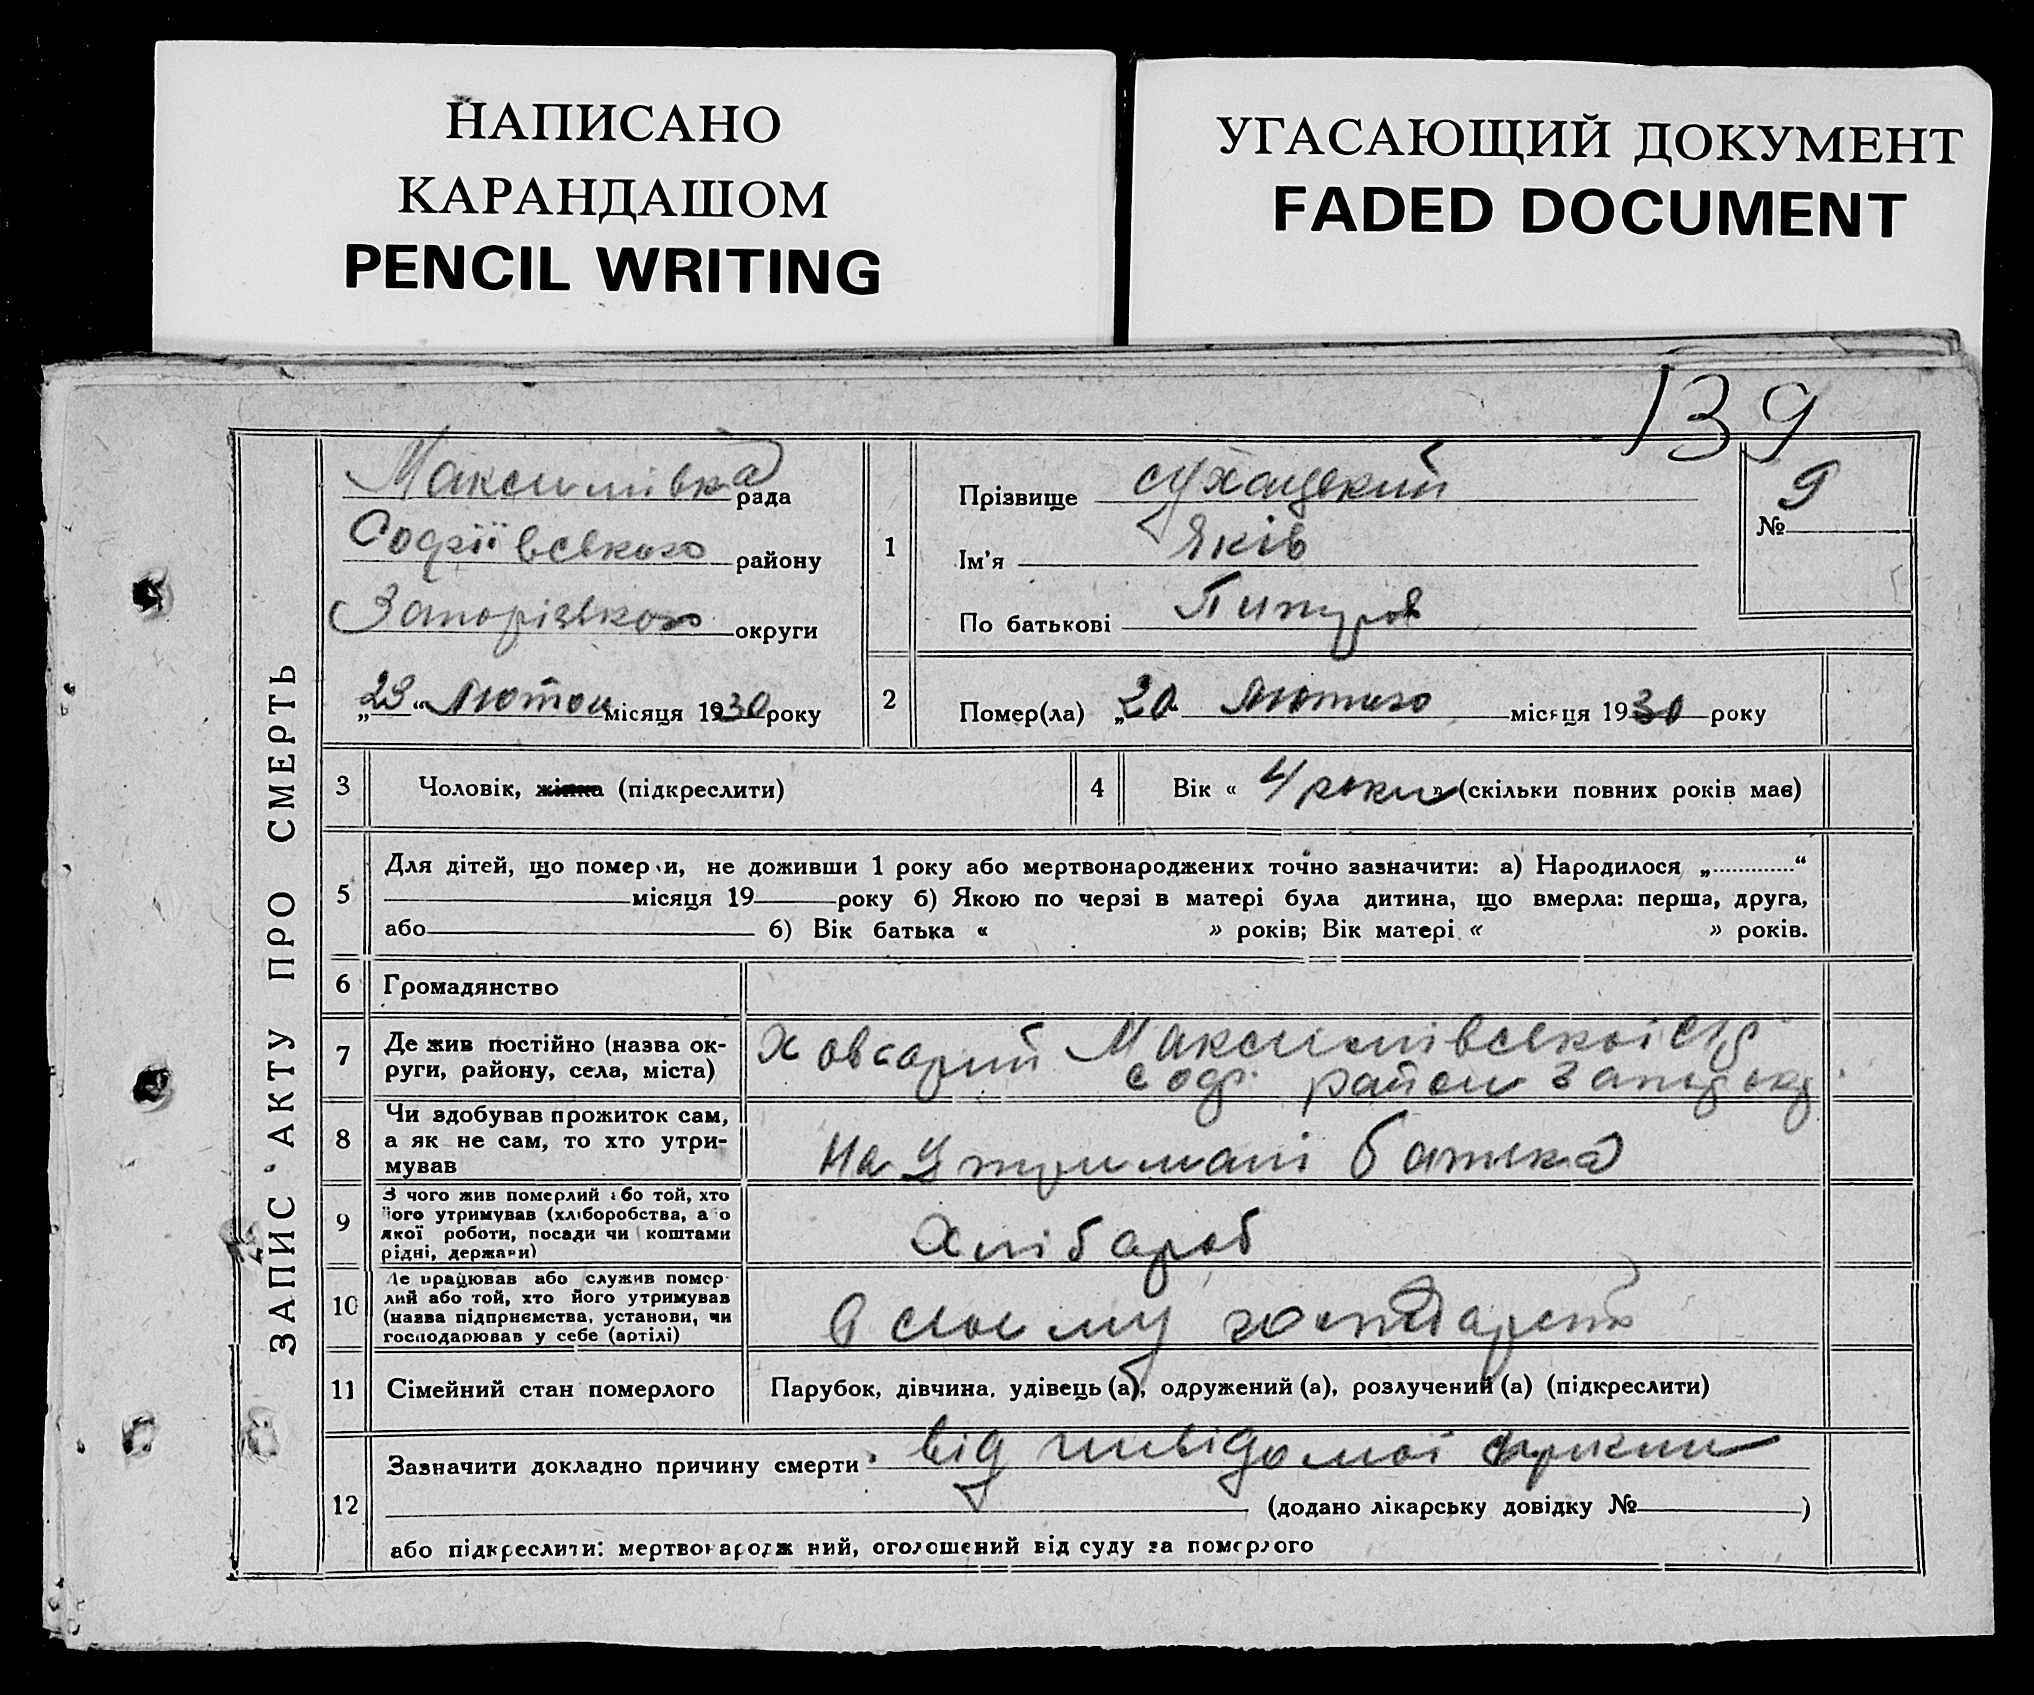 НАПИСАНО
КАРАНДАШОМ
PENCIL WRITING
УГАСАЮЩИЙ ДОКУМЕНТ
FADED DOCUMENT
139
ЗАПИС АКТУ ПРО СМЕРТЬ
Максимівка рада
Софіївського району
Запорізького округи
„23“ Лютого місяця 1930 року
1
Прізвище Сухацький
Ім'я Яків
По батькові
№ 9
2
Помер(ла) „20 Лютого місяця 1930 року
3 Чоловік, жінка (підкреслити)
4 Вік « 4 роки » (скільки повних років має)
5
Для дітей, що померли, не доживши 1 року або мертвонароджених точно зазначити: а) Народилося „............“
місяця 19 року б) Якою по черзі в матері була дитина, що вмерла: перша, друга,
або б) Вік батька « » років; Вік матері « » років.
6 Громадянство
7
Де жив постійно (назва ок-
руги, району, села, міста)
Максимлівської с/р
Соф. район
8
Чи здобував прожиток сам,
а як не сам, то хто утри-
мував
На Утримані батька
9
З чого жив померлий або той, хто
його утримував (хліборобства, а о
якої роботи, посади чи коштами
рідні, держави)
Хлібароб
10
Де працював або служив помер-
лий або той, хто його утримував
(назва підприємства, установи, чи
господарював у себе (артілі)
В своєму госпдарств
11 Сімейний стан померлого
Парубок, дівчина, удівець (а), одружений (а), розлучений (а) (підкреслити)
12
Зазначити докладно причину смерти від невідомої
(додано лікарську довідку № )
або підкреслити: мертвонароджений, оголошений від суду за померлого